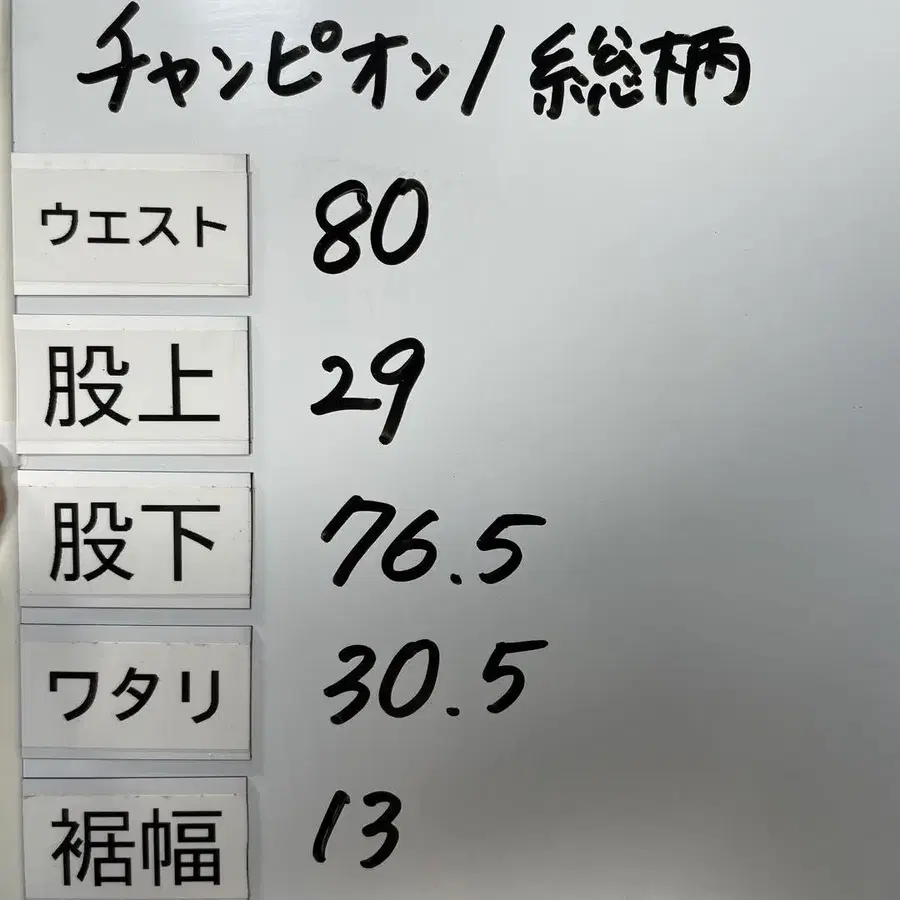 チャンピオン/総柄
ウエスト 80
股上 29
股下 76.5
ワタリ 30.5
裾幅 13